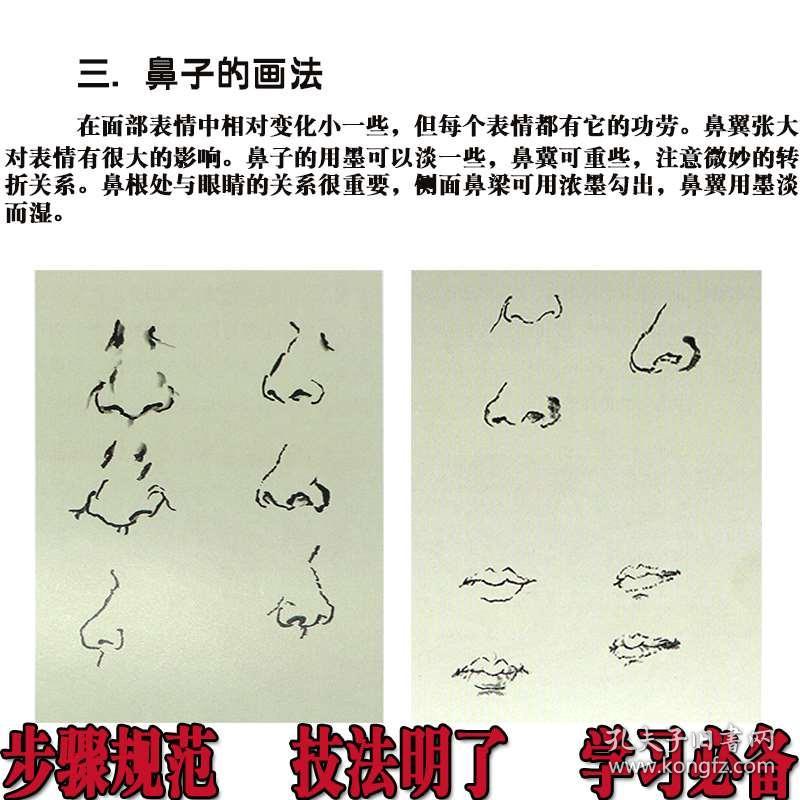 三. 鼻子的画法
在面部表情中相对变化小一些，但每个表情都有它的功劳。鼻翼张大
对表情有很大的影响。鼻子的用墨可以淡一些，鼻冀可重些，注意微妙的转
折关系。鼻根处与眼睛的关系很重要，侧面鼻梁可用浓墨勾出，鼻翼用墨淡
而湿。
步骤规范 技法明了 学习必备
孔夫子旧书网
www.kongfz.com